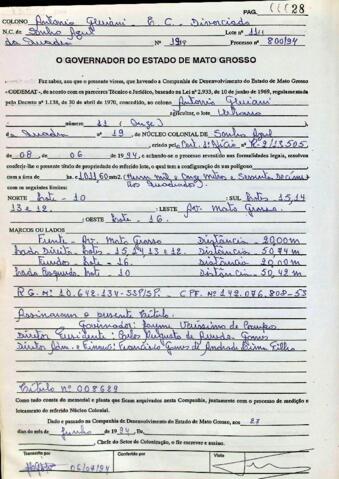 PAG. 28
COLONO Antonio Giuiani E. C. Divorciado
N.C. de Sonho Azul Lote nº 11
da Quadra Nº 19 Processo nº 800/94
O GOVERNADOR DO ESTADO DE MATO GROSSO
Faz saber, aos que o presente virem, que havendo a Companhia de Desenvolvimento do Estado de Mato Grosso
- CODEMAT -, de acordo com os pareceres Técnico e Jurídico, baseado na Lei nº 2.933, de 10 de junho de 1969, regulamentada
pelo Decreto nº 1.138, de 30 de abril de 1970, concedido, ao colono Antonio Giuiani
agricultor, o lote Urbano
número 11 (Onze)
da Quadra nº 19, do NÚCLEO COLONIAL DE Sonho Azul
criado pelo Cart. 1º Ofício nº R-2/13.505
de 08 de 06 de 1994, e achando-se o processo revestido nas formalidades legais, resolveu
conferir-lhe o presente título de propriedade do referido lote, o qual tem a configuração de um polígono
com a área de hs. 1011,60m2. (Hum mil e Onze Metros e Sessenta Decíme-
tros Quadrados)
com os seguintes limites:
NORTE Lote - 10 : SUL Lotes 15, 14
13 e 12. : LESTE Av. Mato Grosso.
: OESTE Lote - 16.
MARCOS OU LADOS
Frente - Av. Mato Grosso Distância - 20,00 m
Lado Direito - Lotes - 15, 14, 13 e 12. Distância - 50,74 m
Fundos - Lote - 16 Distância 20,00 m
Lado Esquerdo - Lote - 10 Distância - 50,42 m
R.G. Nº 10.642.134-SSP/SP. CPF. Nº 142.076.808-53
Assinaram o presente Título.
Governador: Jayme Veríssimo de Campos
Diretor Presidente: Carlos Augusto de Arruda Gomes
Diretor Adm. e Financ: Francisco Gomes de Andrade Lima Filho
Título nº 008629
Como tudo consta do memorial e planta que ficam arquivados nesta Companhia, juntamente com o processo de medição e
loteamento do referido Núcleo Colonial.
Dado e passado na Companhia de Desenvolvimento do Estado de Mato Grosso, aos 27
dias do mês de Junho de 1994.
Chefe do Setor de Colonização, o fiz escrever e assino.
Transcrito por Conferido por Visto
05/07/94